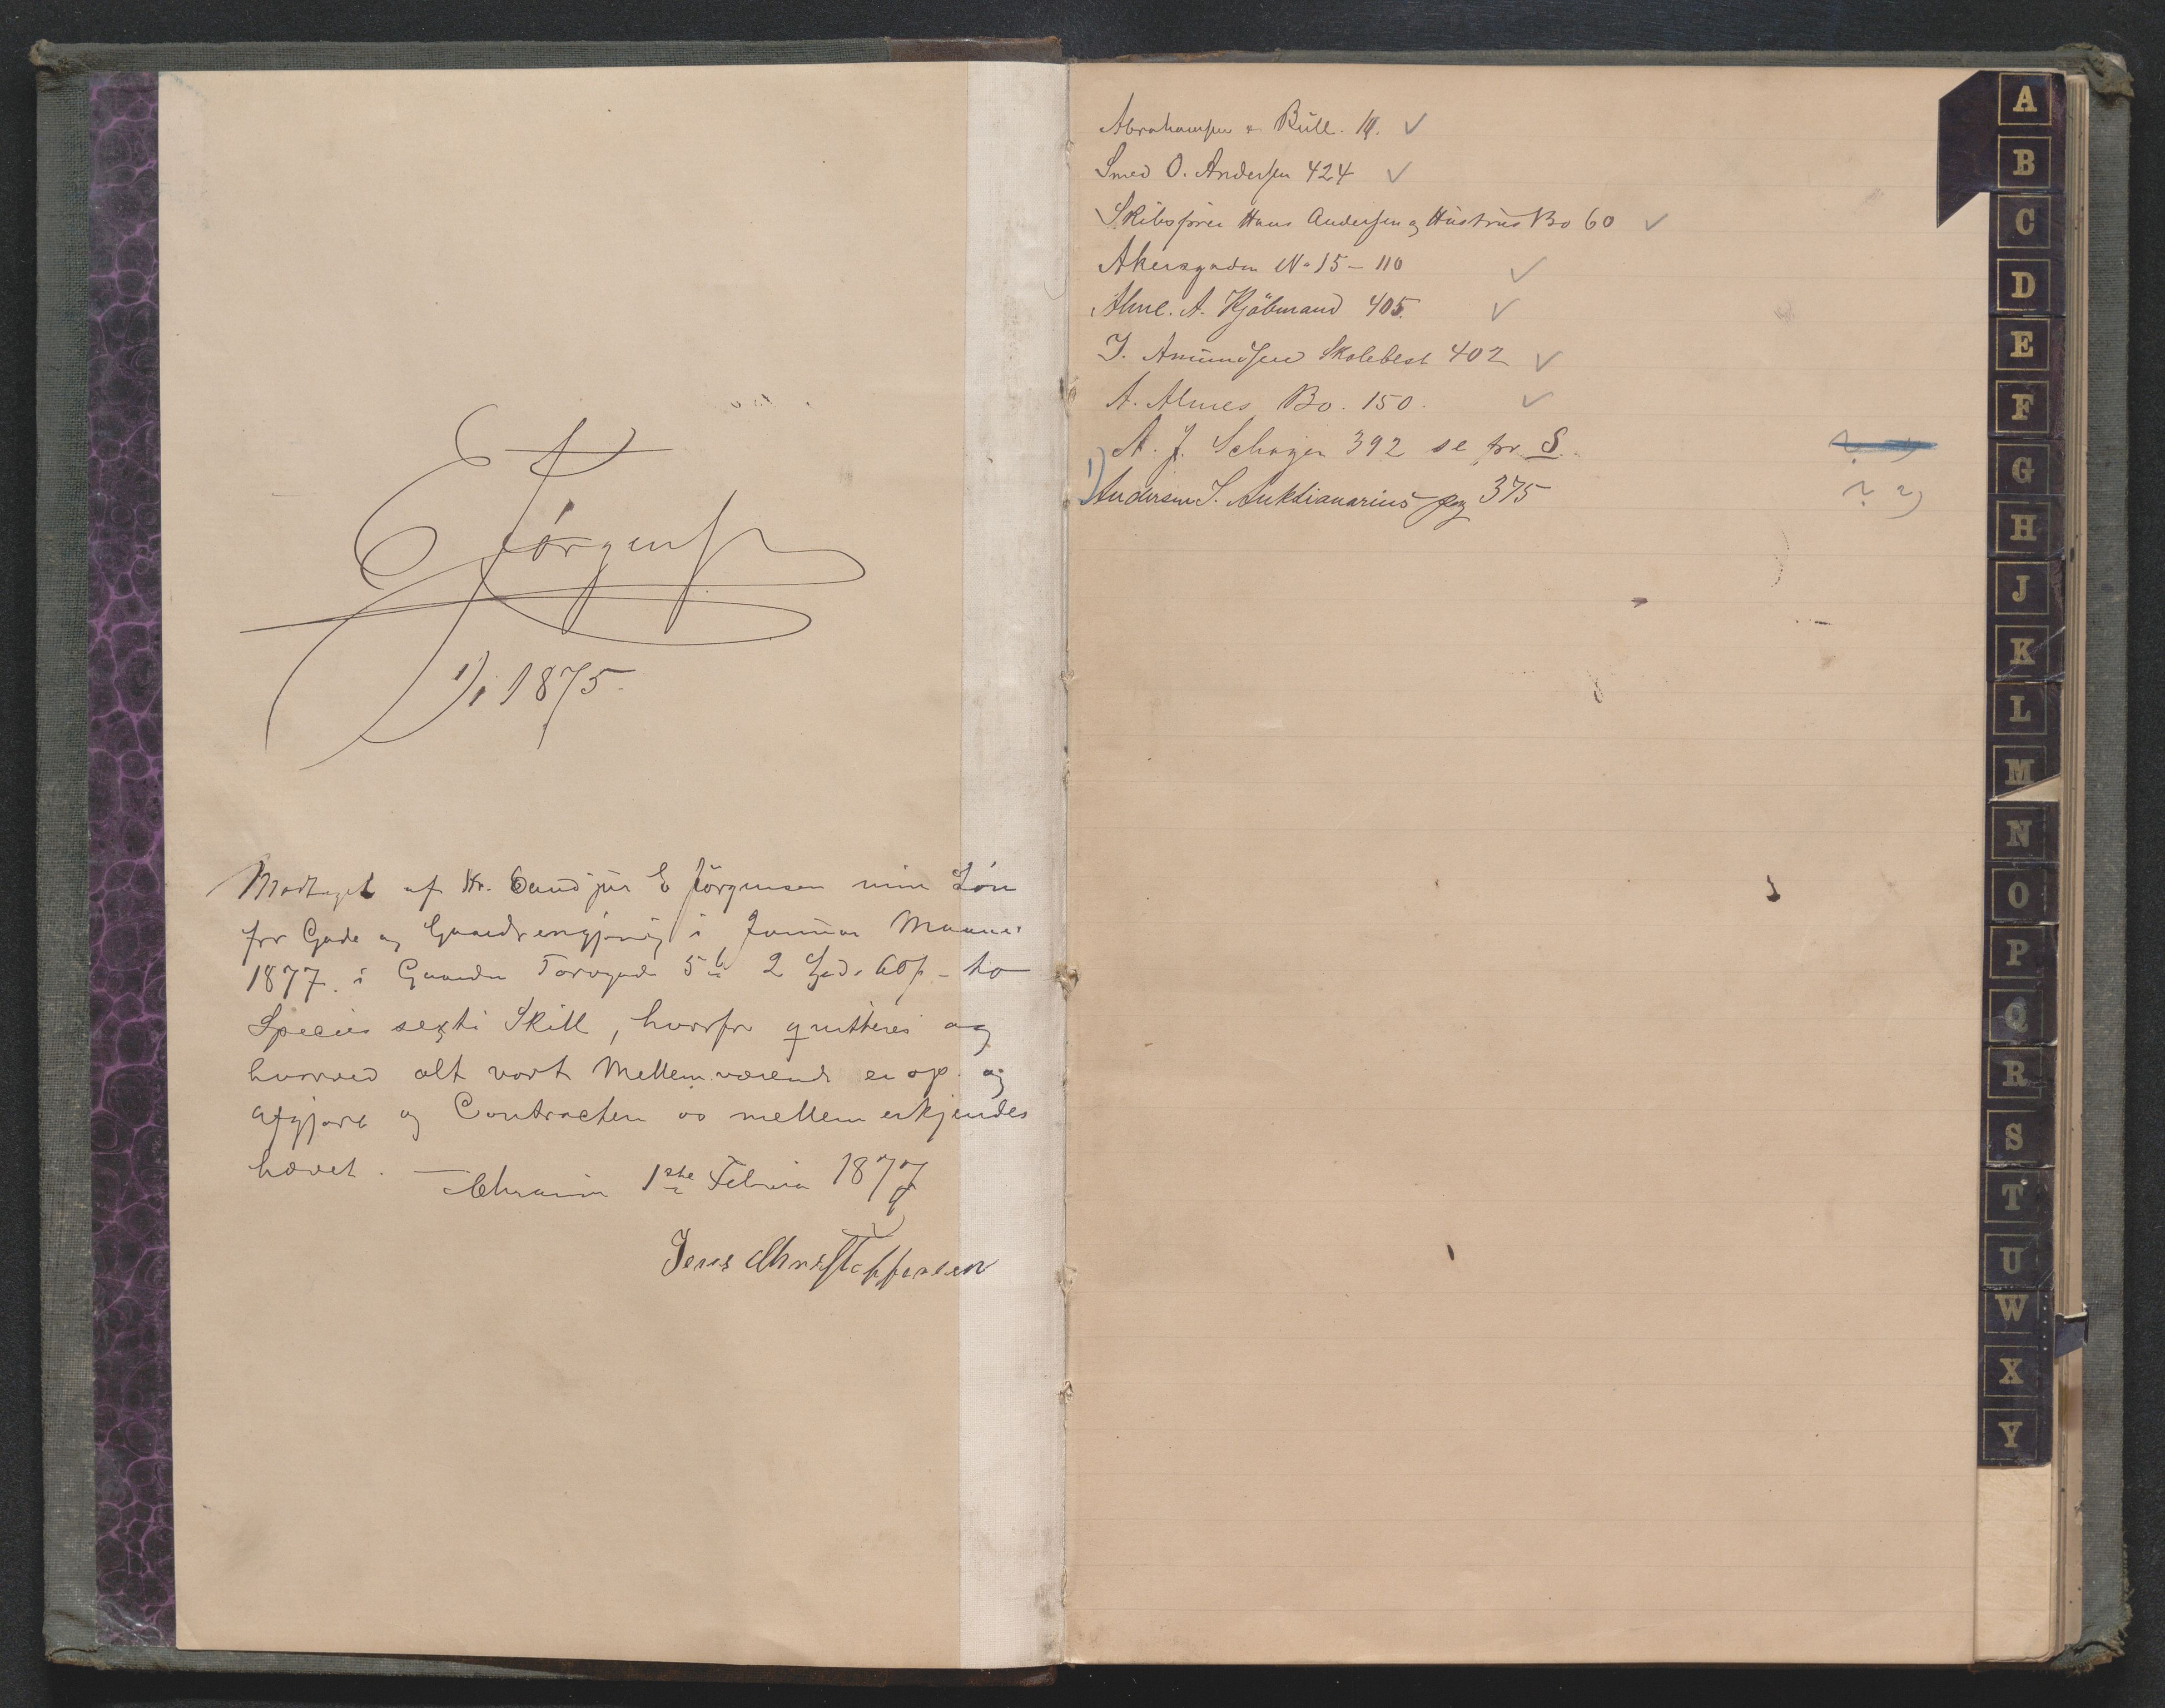 E Jörgensen
1/1 1875.
Modtaget af Hr. Cand jur E Jörgensen min Lön
for Gade og Gaardrengjøring i Januar Maaned
1877. i Gaarden Torvgade 5 b 2 60 - to
Species sexti Skill, hvorfor qvitteres og
hvorved alt vort Mellemværende er op og
afgjort og Contracten os mellem erkjendes
hævet.
Chrania 1ste Februar 1877
Jens Christoffersen
Abrahamsen & Bull.
Smed O. Andersen 424
Skibsfører Hans Andersen og Hustrus Bo 60
Akersgaden No 15 - 110
Alme. A. Kjöbmand 405.
J. Amundsen Skolebest 402
A. Almes Bo. 150.
A. J. Schøgen 392 se for S.
1) Andersen J. Auktionarius pag 375
A
B
C
D
E
F
G
H
J
K
L
M
N
O
P
Q
R
S
T
U
W
X
Y